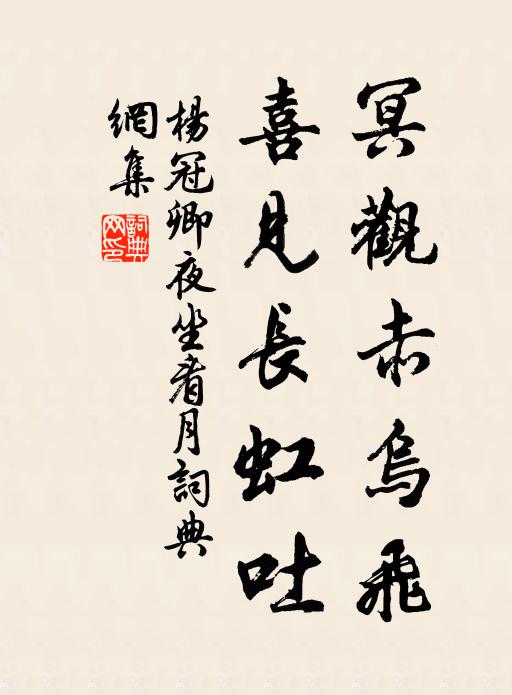 冥觀赤烏飛
喜見長虹吐
楊冠卿夜坐看月詞典
網集
詞典網印